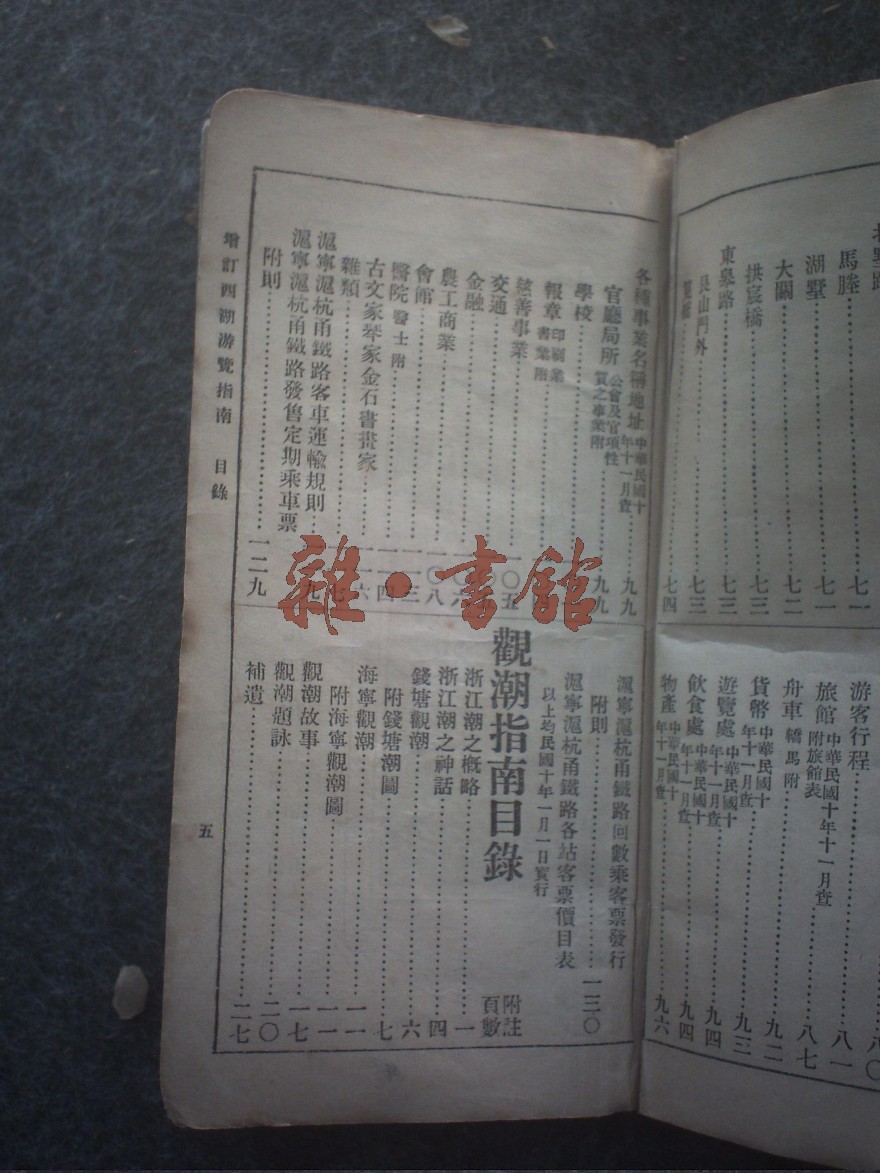 馬塍⋯⋯七一
湖墅⋯⋯七一
大關⋯⋯七二
拱宸橋⋯⋯七三
東臯路⋯⋯七三
艮山門外⋯⋯七三
七四
游客行程⋯⋯八〇
旅館 中華民國十年十一月查 附旅館表⋯⋯八一
舟車 轎馬附⋯⋯八七
貨幣 中華民國十年十一月查⋯⋯九二
遊覽處 中華民國十年十一月查⋯⋯九三
飲食處 中華民國十年十一月查⋯⋯九四
物產 中華民國十年十一月查⋯⋯九六
各種事業名稱地址 中華民國十年十一月查⋯⋯九九
官廳局所 公會及官項性質之事業附⋯⋯九九
學校
報章 印刷業書業附
慈善事業
交通
金融
農工商業⋯⋯一〇八
會館
醫院 醫士附
古文家琴家金石書畫家
雜類
滬寧滬杭甬鐵路客車運輸規則
滬寧滬杭甬鐵路發售定期乘車票
附則⋯⋯一二九
滬寧滬杭甬鐵路回數乘客票發行
附則⋯⋯一三〇
滬寧滬杭甬鐵路各站客票價目表
以上均民國十年一月一日實行
觀潮指南目錄
附註頁數
浙江潮之概略⋯⋯一
浙江潮之神話⋯⋯四
錢塘觀潮⋯⋯六
附錢塘潮圖⋯⋯七
海寧觀潮⋯⋯一一
附海寧觀潮圖⋯⋯一一
觀潮故事⋯⋯一七
觀潮題詠⋯⋯二〇
補遺⋯⋯二七
增訂西湖游覽指南 目錄
五
雜·書館